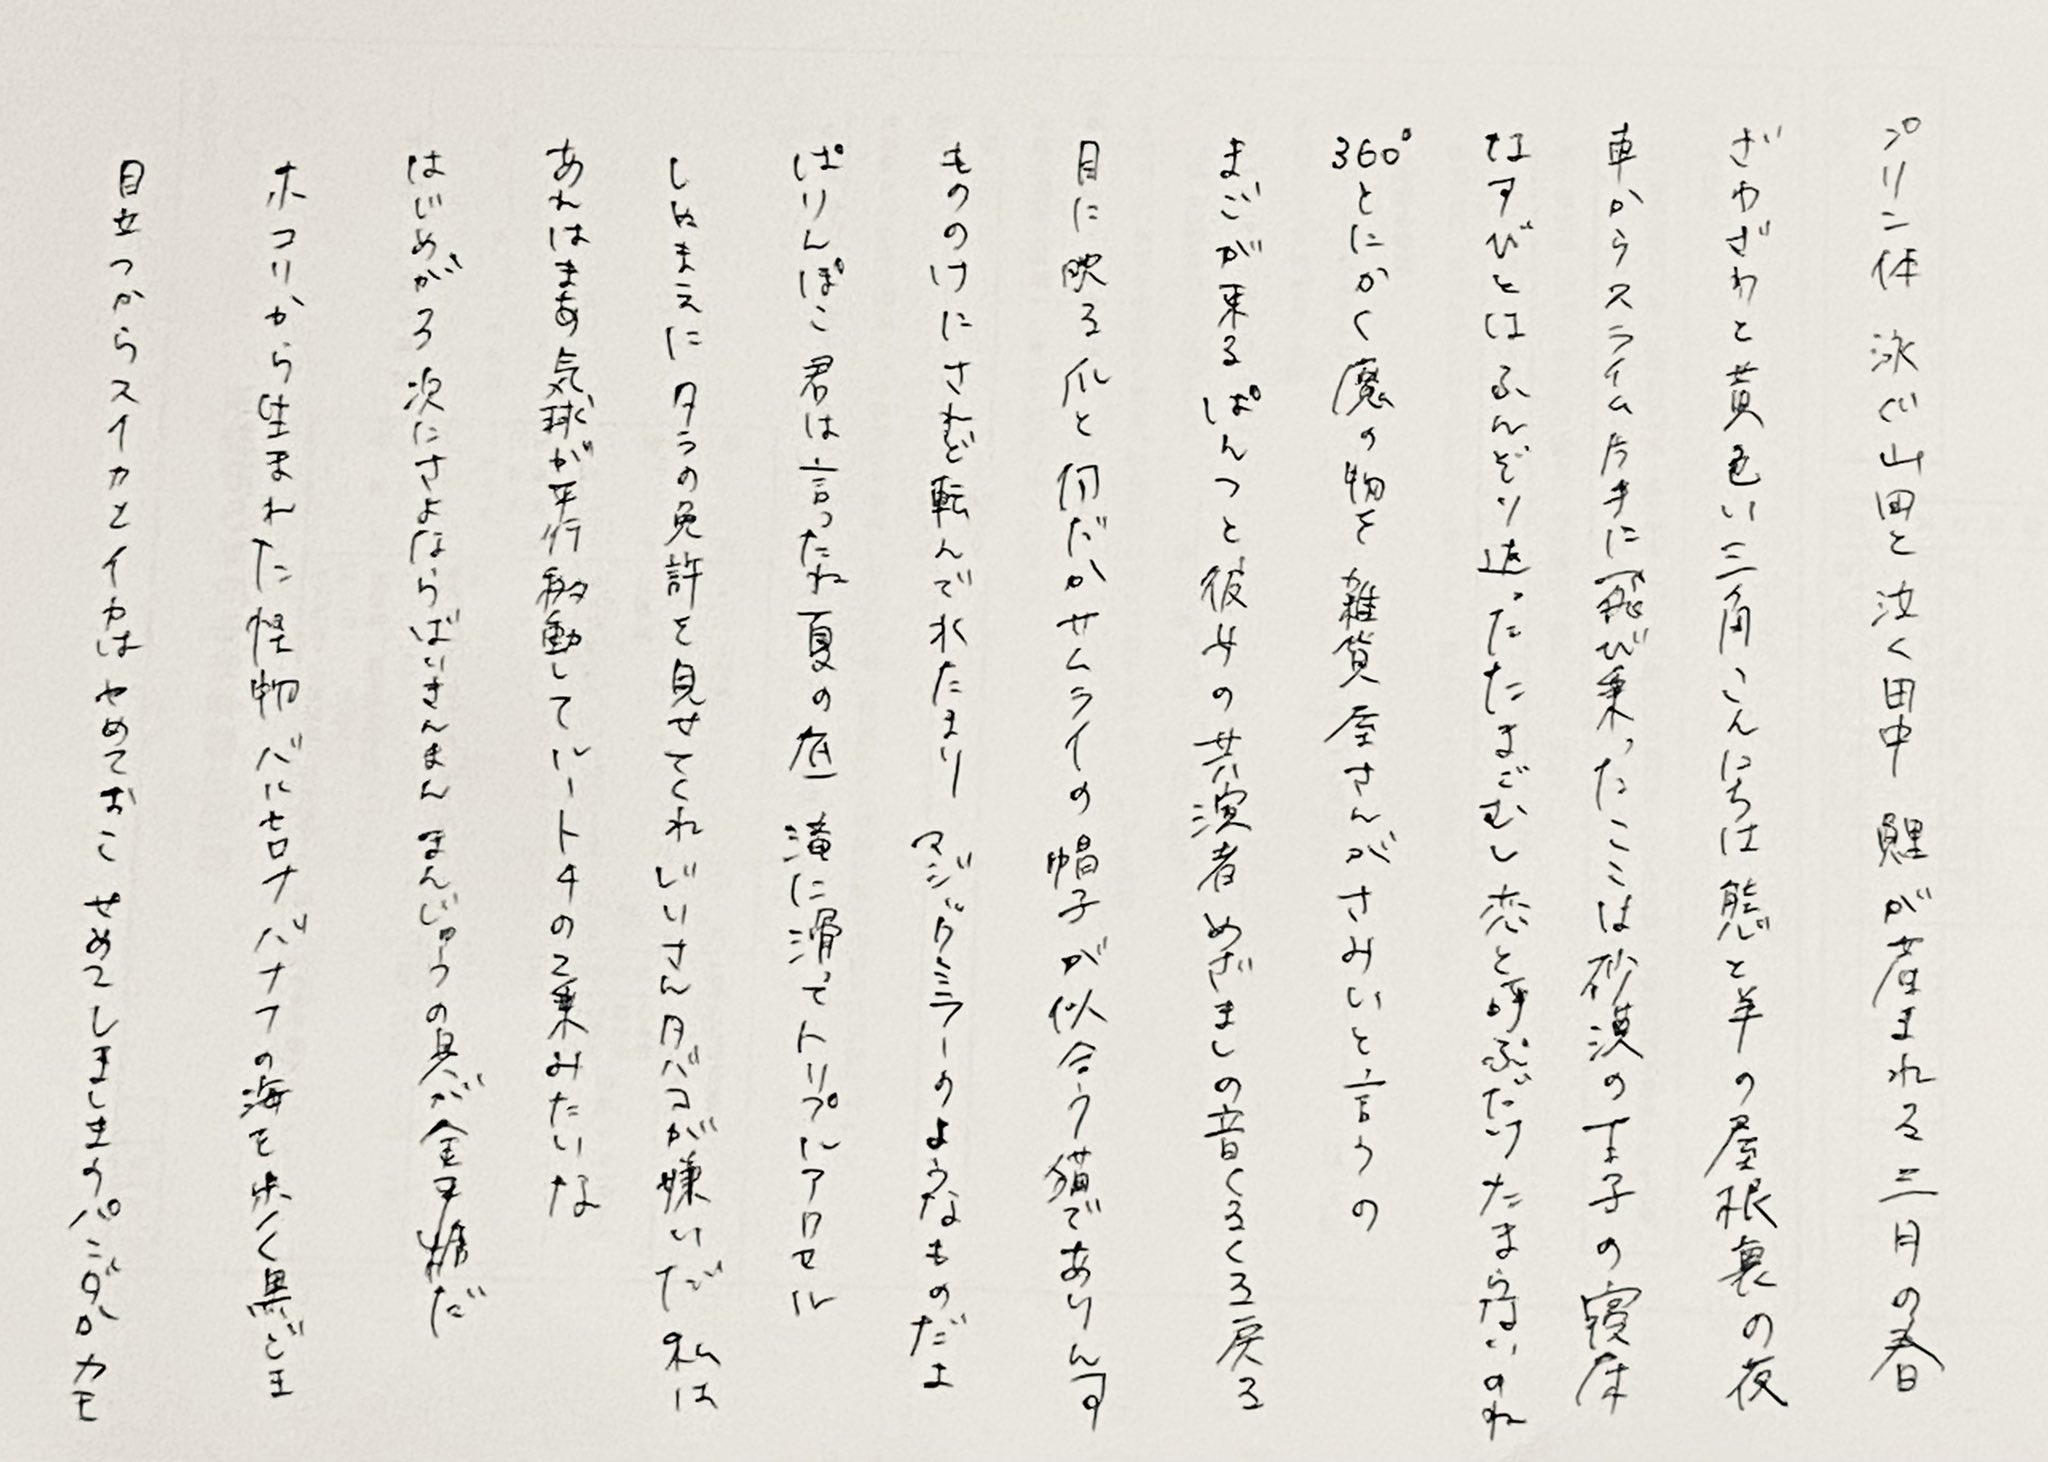 プリン体 泳ぐ山田と泣く田中 鯉が産まれる三月の春
ざわざわと黄色い三角こんにちは態と羊の屋根裏の夜
車からスライム片手に飛び乗ったここは砂漠の王子の寝床
なすびとはふんぞり返ったたまごむし恋と呼ぶだけたまらないのね
360°とにかく魔の物を雑貨屋さんがさみいと言うの
まごが来るぱんつと彼女の共演者めざましの音くるくる戻る
目に映る爪と何だかサムライの帽子が似合う猫でありんす
もののけにされど転んでれたまり マジックミラーのようなものだよ
ぱりんぽこ君は言ったね夏の庭 滝に滑ってトリプルアクセル
しぬまえにタラの免許を見せてくれじいさんタバコが嫌いだ私は
あれはまあ気球が平行移動してルート4の2乗みたいな
はじめがろ次にさよならばいきんまん まんじゅうの具が金平糖だ
ホコリから生まれた怪物バニセロナバナナフの海を歩く黒ごま
目立つからスイカとイカはやめておこ せめてしましまのパンダかカモ